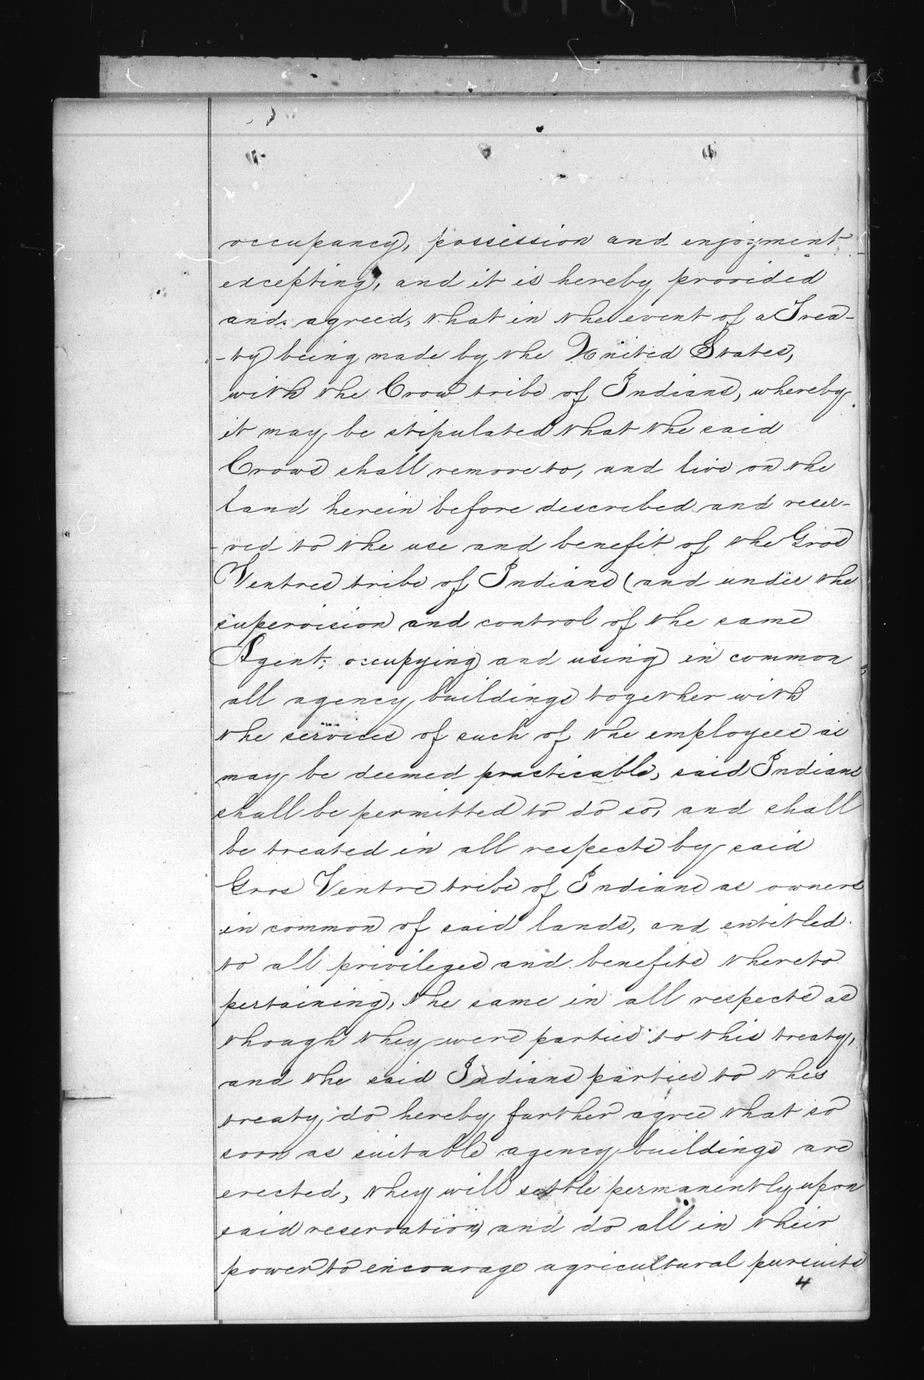 occupancy, possession and enjoyment
excepting, and it is hereby provided
and agreed, that in the event of a Trea-
-ty being made by the United States,
with the Crow tribe of Indians, whereby
it may be stipulated that the said
Crows shall remove to, and live on the
land herein before described and reser-
-ved to the use and benefit of the Gros
Ventres tribe of Indians (and under the
supervision and control of the same
Agent, occupying and using in common
all agency buildings together with
the services of such of the employees as
may be deemed practicable, said Indians
shall be permitted to do so, and shall
be treated in all respects by said
Gros Ventre tribe of Indians as owners
in common of said lands, and entitled
to all privileges and benefits thereto
pertaining, the same in all respects as
though they were parties to this treaty,
and the said Indians parties to this
treaty do hereby further agree that so
soon as suitable agency buildings are
erected, they will settle permanently upon
said reservation, and do all in their
power to encourage agricultural pursuits
4